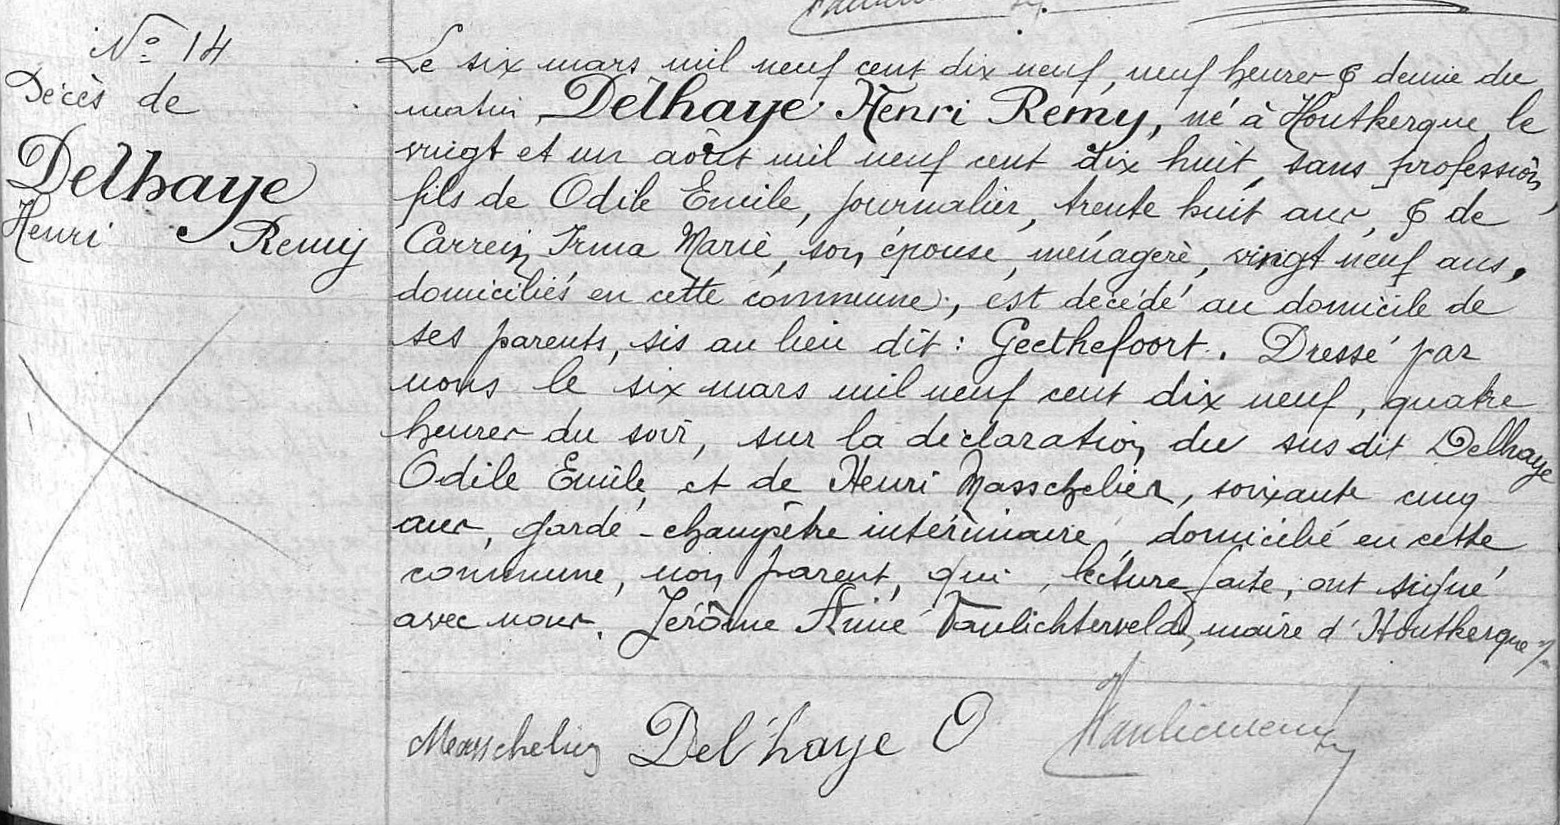 N° 14
Décès de
Delhaye
Henri Remy
Le six mars mil neuf cent dix neuf, neuf heures & demie du
matin, Delhaye Henri Remy, né à Houtkerque, le
vingt et un août mil neuf cent dix huit, sans profession,
fils de Odile Emile, journalier, trente huit ans, & de
Carrein Irma Marie, son épouse, ménagère, vingt neuf ans,
domiciliés en cette commune, est décédé au domicile de
ses parents, sis au lieu dit : Geethefoort. Dressé par
nous le six mars mil neuf cent dix neuf, quatre
heures du soir, sur la déclaration du sus dit Delhaye
Odile Emile, et de Henri Masschelier, soixante cinq
ans, garde-champêtre intérimaire, domicilié en cette
commune, non parent, qui, lecture faite, ont signé
avec nous. Jérôme Aimé Vanlichterveld, maire d'Houtkerque
Masschelier Del'haye O